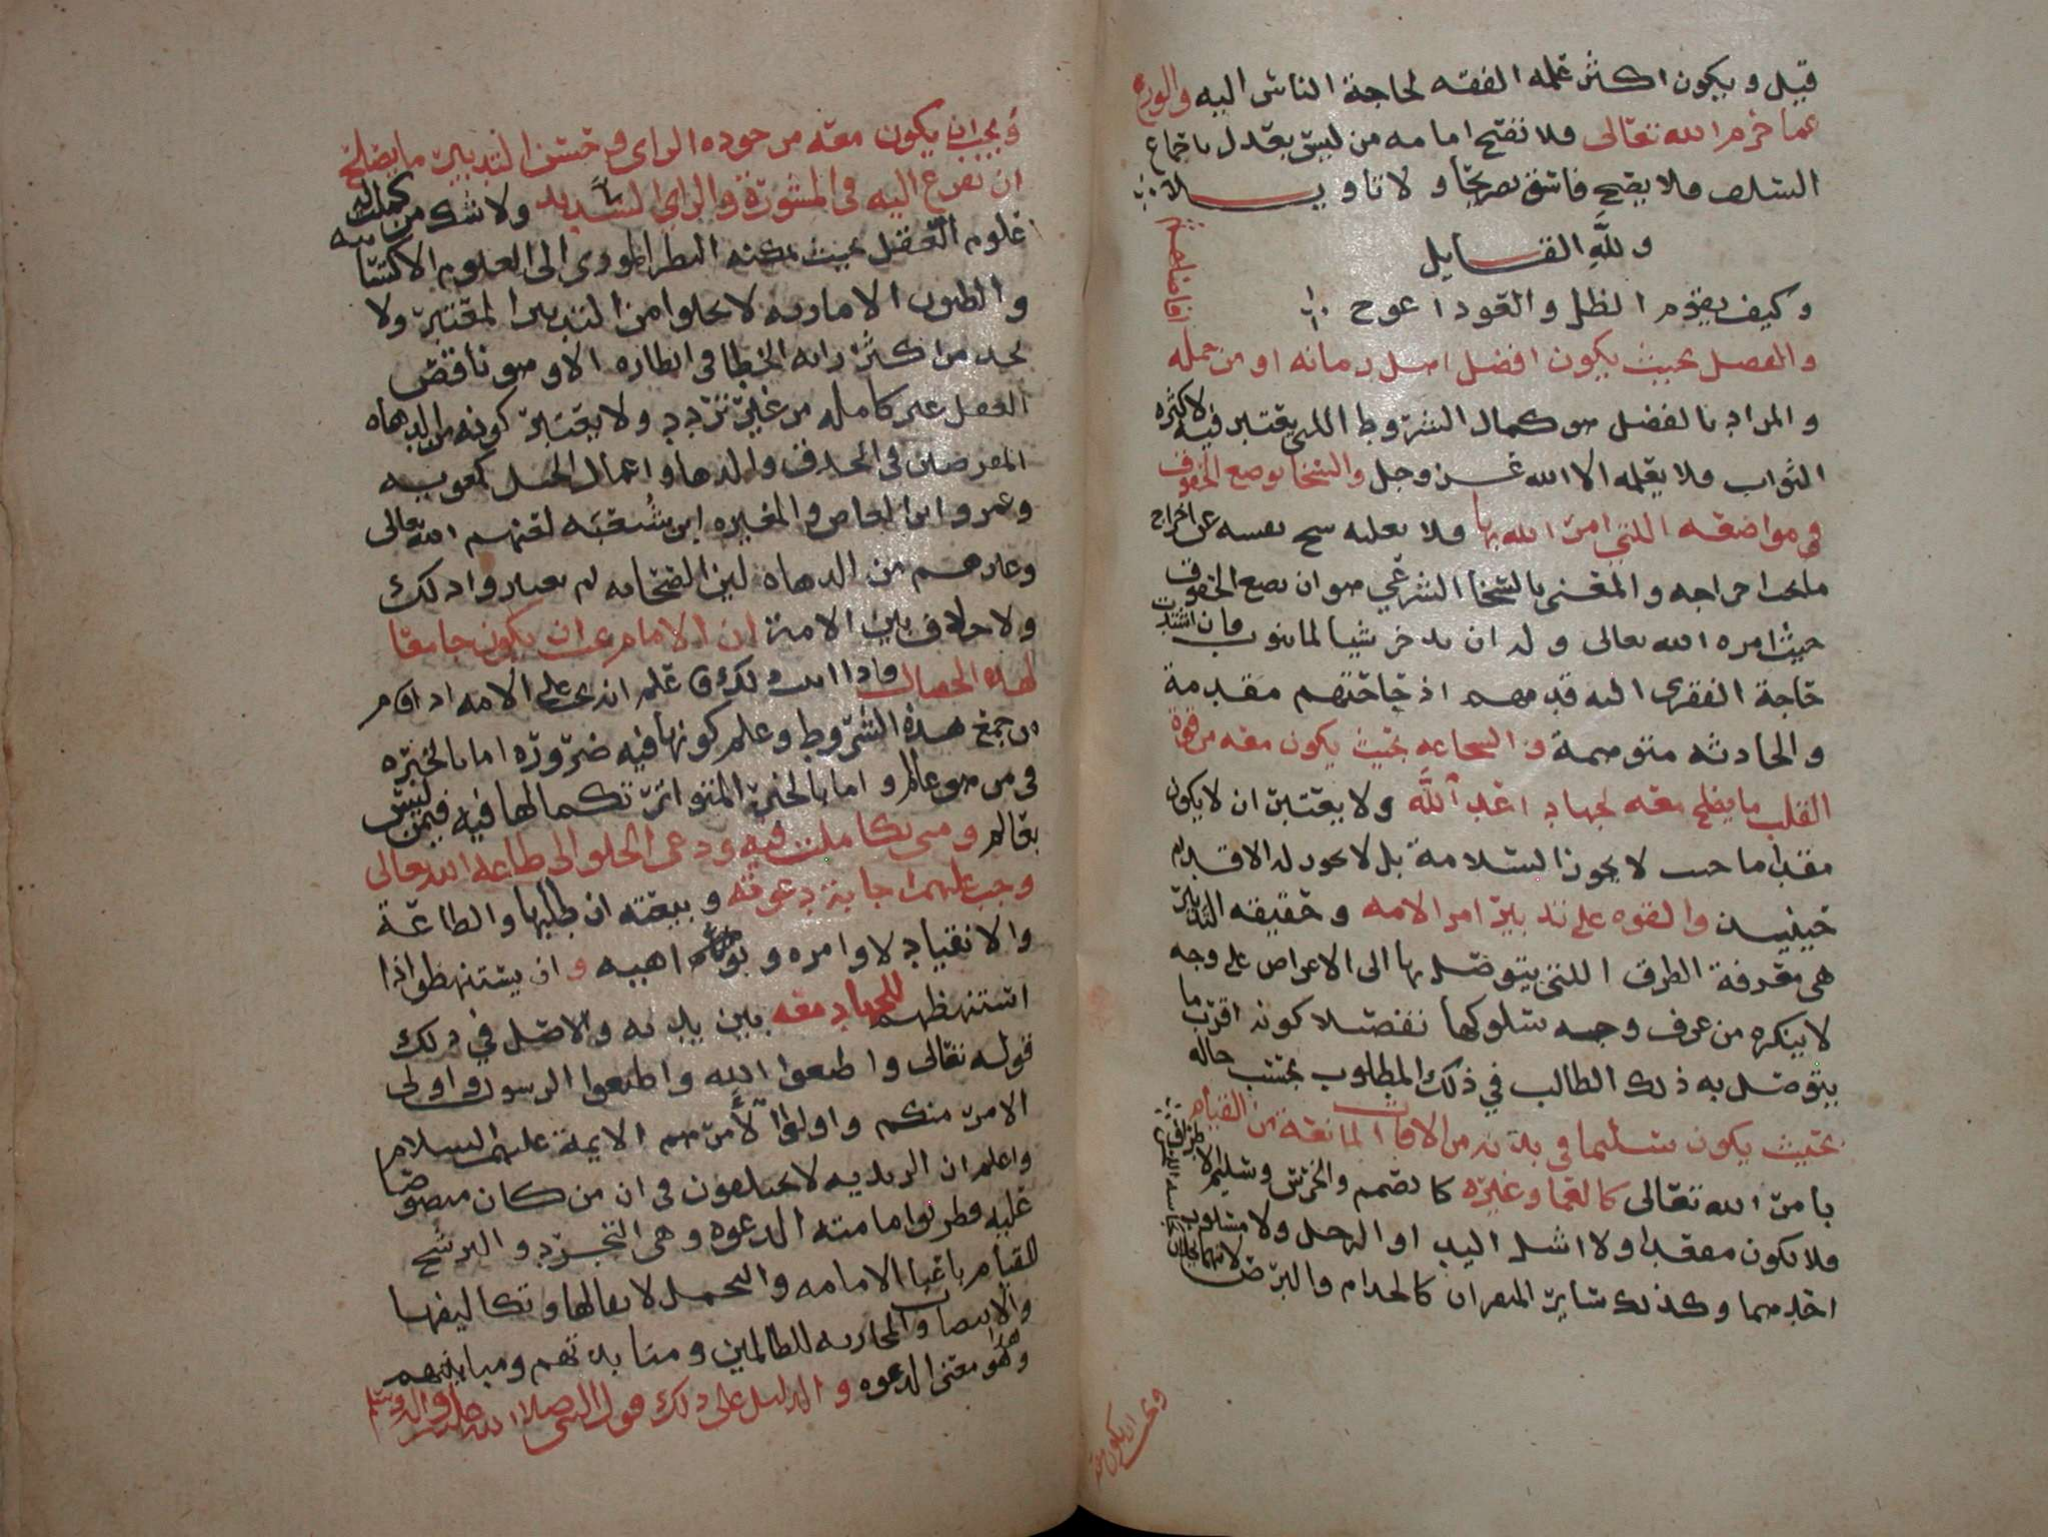 قيل ويكون اكثر علمه الفقه لحاجة الناس اليه والورع
عما حرم الله تعالى فلا تصح امامه من ليس بعدل باجماع
السلف فلا يصح فاسق تصريحا ولا تاويلا
ولله القايل
وكيف يقوم الظل والعود اعوج
والفضل بحيث يكون افضل اهل زمانه او من جمله
والمراد بالفضل هو كمال الشروط اللتي يعتبر فيه لا كثره
الثواب فلا يعلمه الا الله عز وجل والسخا بوضع الحقوق
في مواضعه اللتي امر الله بها فلا يغلبه شح نفسه عن اخراج
ما يجب اخراجه والمعنى بالسخا الشرعي هو ان يضع الحقوق
حيث امره الله تعالى وله ان يدخر شيا لما ينوب فان اشتدت
حاجة الفقرى اليه قدمهم اذ حاجتهم مقدمة
والحادثه متوهمة والشجاعه بحيث يكون معه من قوة
القلب ما يصلح معه لجهاد اعدا الله ولا يعتبر ان لا يكون
مقداما حيث لا يجوز السلامة بل لا يجوز له الاقدام
حينيذ والقوه على تدبير امر الامه وحقيقه التدبير
هي معرفة الطرق اللتي يتوصل بها الى الاغراض على وجه
لا ينكره من عرف وجه سلوكها نفضلا كونه اقرب ما
يتوصل به ذلك الطالب في ذلك المطلوب بحسب حاله
بحيث يكون سليما في بدنه من الافات المانعة من القيام
بامر الله تعالى كالعما وغيره كالصمم والخرس وسليم الاطراف
فلا يكون مقعدا ولا اشل اليد او الرجل ولا مسلوب
احدهما وكذلك ساير المنفران كالجدام والبرص
ويجب ان يكون معه
ويجب ان يكون معه من جوده الراى وحسن التدبير ما يصلح
ان يفزع اليه في المشورة والراي السديد ولا شك من كملت له
علوم العقل بحيث يمكنه النظر المودي الى العلوم الاكتسابيه
والظنون الاماريه لا يخلوا من التدبير المعتبر ولا
نجد من اكثر رايه الخطا في انظاره الا وهو ناقص
العقل غير كامله من غير تردد ولا يعتبر كونه من الدهاه
المفرطين في الحذق والدها واعمال الحيل كمعويه
وعمرو ابن العاص والمغيره ابن شعبه لعنهم الله تعالى
وغيرهم من الدهاه لين الصحابه لم يعتبروا ذلك
ولا خلاف بين الامة ان الامام يجب ان يكون جامعا
لهذه الخصال فاذا ثبت ذلك علم انه يجب على الامه اذا قام
من جمع هذه الشروط وعلم كونها فيه ضروره اما بالخبره
في من هو عالم واما بالخبر المتواتر تكمالها فيه فيمن ليس
بعالم ومتى تكاملت فيه ودعى الخلق الى طاعه الله تعالى
وجب عليهم اجابة دعوته وبيعته ان طلبها والطاعة
والانقياد لاوامره ونواهيه وان يستنهظوا اذا
استنهظهم للجهاد معه بين يديه والاصل في ذلك
قوله تعالى واطيعوا الله واطيعوا الرسول واولى
الامر منكم واولوا الامر هم الايمة عليهم السلام
واعلم ان الزيديه لا يختلفون في ان من كان منصوصا
عليه فطريق امامته الدعوه وهي التجرد والترشح
للقيام باعبا الامامه والتحمل لاثقالها وتكاليفها
والانتصاب والمحاربه للظالمين ومنابذتهم ومباينتهم
وهذا هو معنى الدعوه والدليل على ذلك قول النبي صلى الله عليه واله وسلم